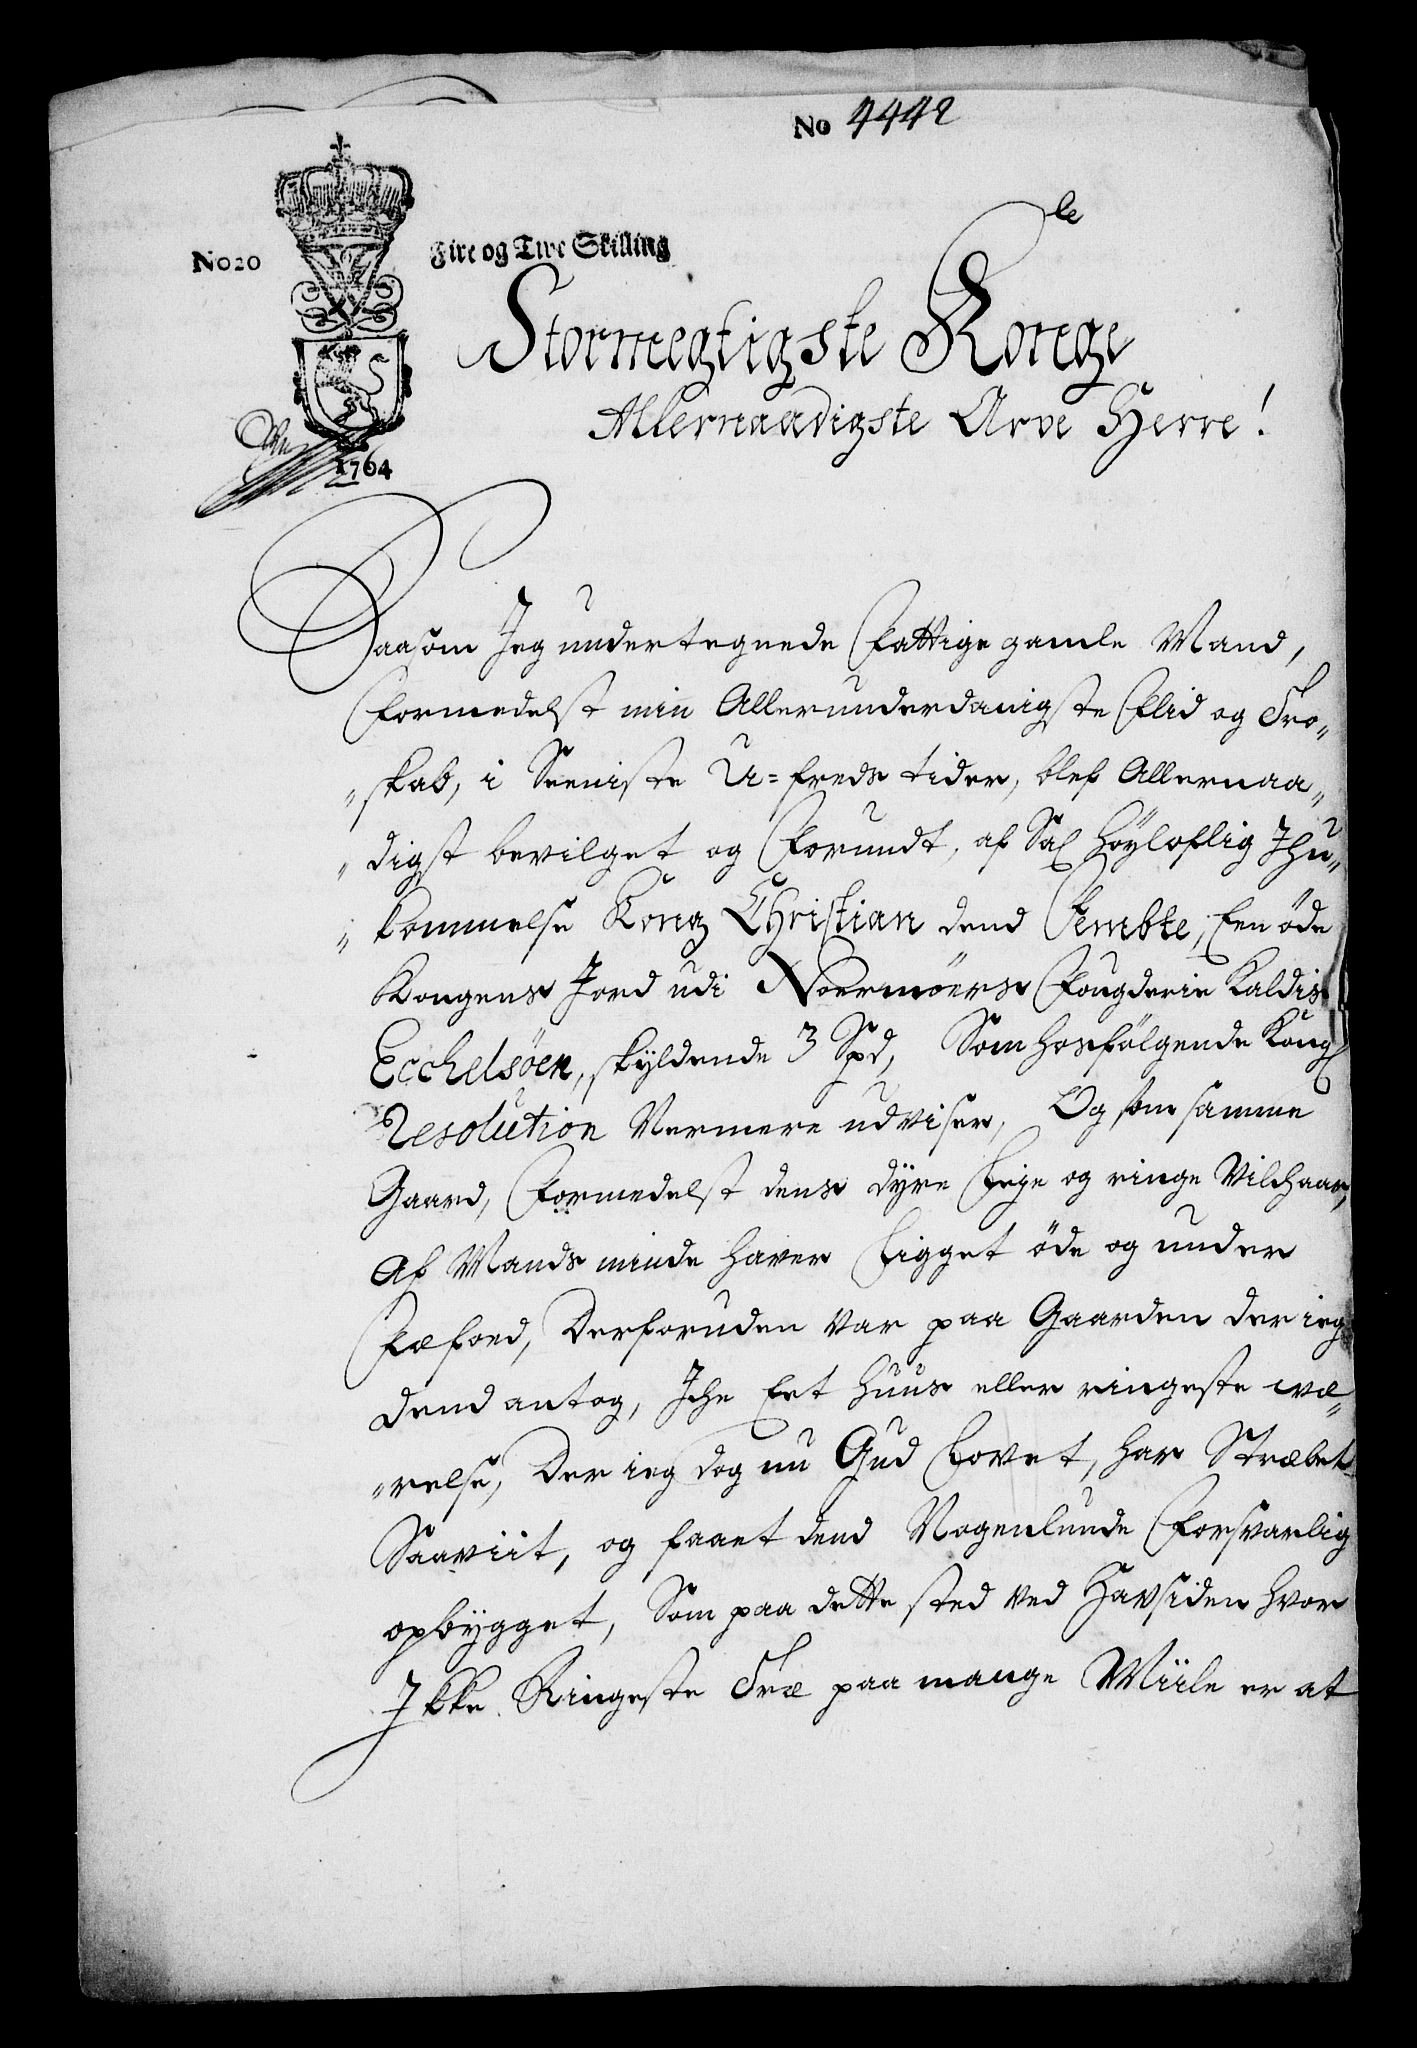 No 4442
le
No 20
Fire og Tive Skilling
Stormegtigste Konge
Allernaadigste Arve Herre!
1704
Saasom Jeg undertegnede fattige gamle Mand,
formedelst min Allerunderdanigste flid og Tro„
„skab, i Seeniste U=freds tider, blef Allernaa„
„digst bevilget og forundt, af Sal Höyloflig Ihu„
„kommelse Kong Christian dend fembte, Een öde
Kongens Jord udi Noermöers fougderie kaldis
Ecchelsöen, skyldende 3 Spd, Som hosfölgende Kongl
Resolution Nermere udviser, Og som samme
Gaard, formedelst dens dyre Leje og ringe Vilchaar,
Af Mands minde haver Ligget öde og under
fæfoed, Derforuden var paa Gaarden der ieg
dend antog, Iche Eet huus eller ringeste væ„
„relse, Der ieg dog nu Gud Lovet, har Stræbet
Saaviit, og faaet dend Nogenlunde forsvarlig
opbygget, Som paa dette sted ved Havsiden hvor
Ikke Ringeste Træ paa mange Miile er at